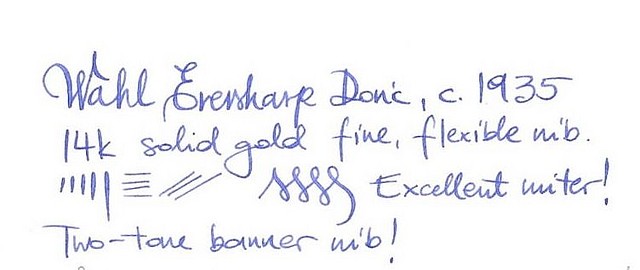 Wahl Eversharp Doric, c. 1935
14k solid gold fine, flexible nib.
Excellent writer!
Two-tone banner nib!